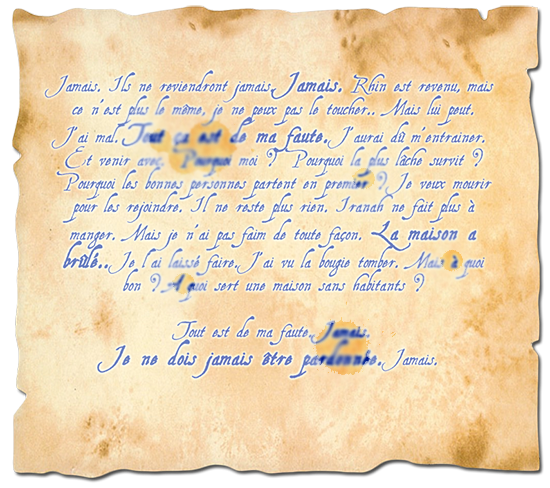 Jamais. Ils ne reviendront jamais. Jamais. Rhin est revenu, mais
ce n'est plus le même, je ne peux pas le toucher.. Mais lui peut.
J'ai mal. Tout ça est de ma faute. J'aurai dû m'entrainer.
Et venir avec. Pourquoi moi ? Pourquoi la plus lâche survit ?
Pourquoi les bonnes personnes partent en premier ? Je veux mourir
pour les rejoindre. Il ne reste plus rien. Iranah ne fait plus à
manger. Mais je n'ai pas faim de toute façon. La maison a
brûlé.. Je l'ai laissé faire. J'ai vu la bougie tomber. Mais à quoi
bon ? A quoi sert une maison sans habitants ?
Tout est de ma faute. Jamais.
Je ne dois jamais être pardonnée. Jamais.